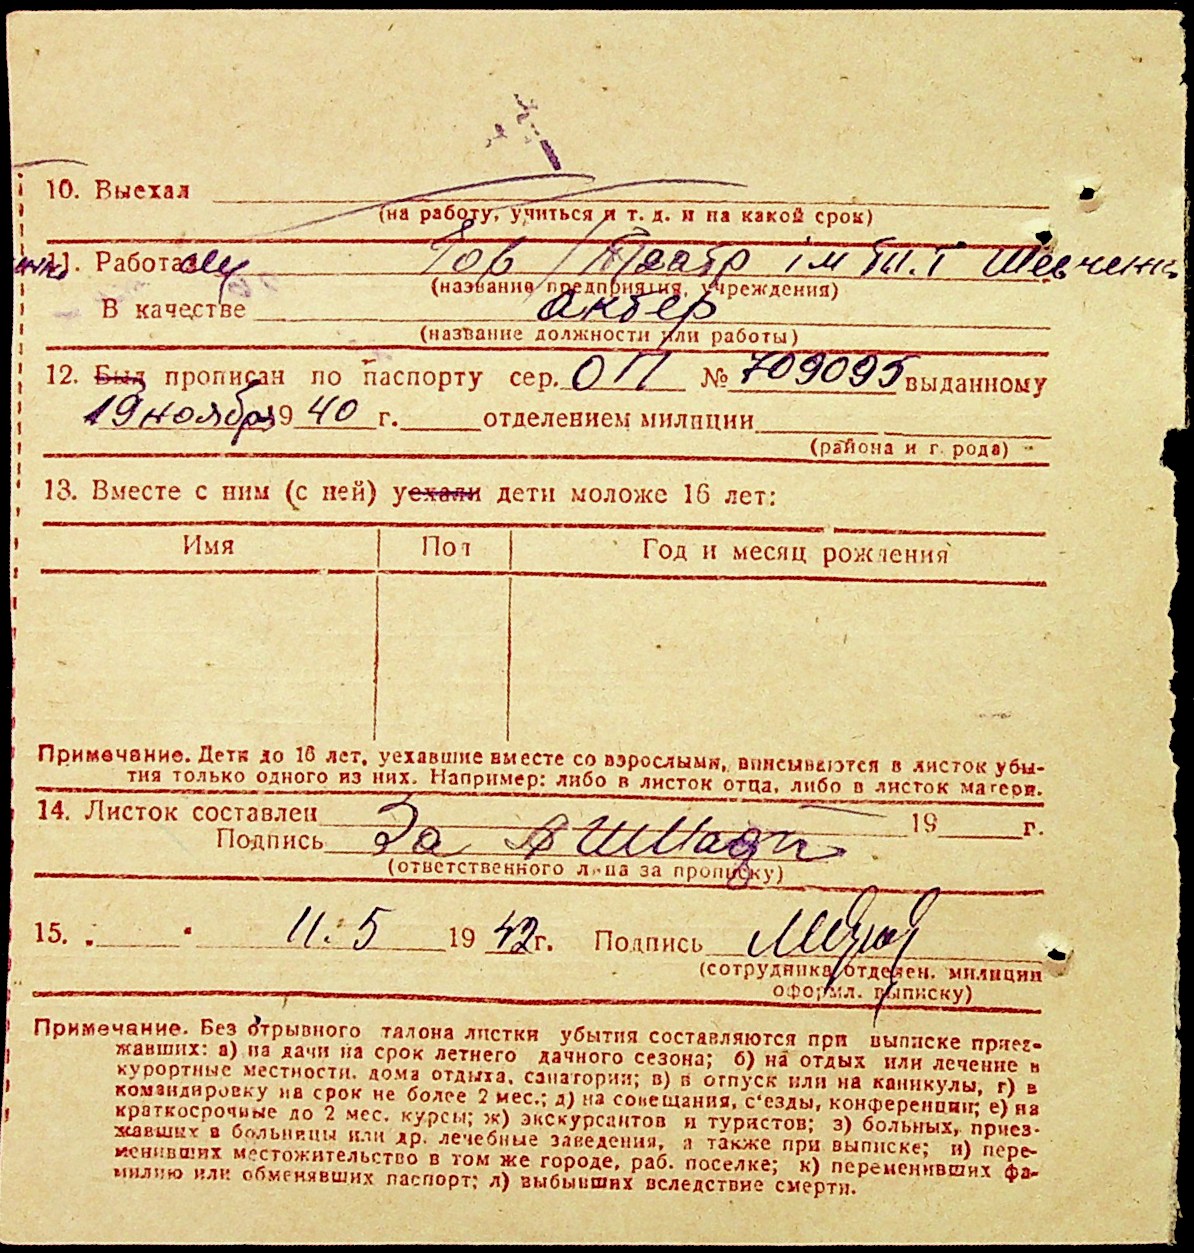 10. Выехал
(на работу, учиться и т. д. и на какой срок)
11. Работал Театр ім Т. Г Шевченка
(название предприятия, учреждения)
В качестве актер
(название должности или работы)
12. Был прописан по паспорту сер. ОП № 709095 выданному
19 ноября 1940 г. отделением милиции
(района и г. рода)
13. Вместе с ним (с ней) уехали дети моложе 16 лет:
Имя Пол Год и месяц рождения
Примечание. Дети до 16 лет, уехавшие вместе со взрослыми, вписываются в листок убы-
тия только одного из них. Например: либо в листок отца, либо в листок матери.
14. Листок составлен 19 г.
Подпись За
(ответственного лица за прописку)
15. 11. 5 1942г. Подпись
(сотрудника отделен. милиции
оформл. выписку)
Примечание. Без отрывного талона листки убытия составляются при выписке приез-
жавших: а) на дачи на срок летнего дачного сезона; б) на отдых или лечение в
курортные местности, дома отдыха, санатории; в) в отпуск или на каникулы, г) в
командировку на срок не более 2 мес.; д) на совещания, с'езды, конференции; е) на
краткосрочные до 2 мес. курсы; ж) экскурсантов и туристов; з) больных, приез-
жавших в больницы или др. лечебные заведения, а также при выписке; и) пере-
менивших местожительство в том же городе, раб. поселке; к) переменивших фа-
милию или обменявших паспорт; л) выбывших вследствие смерти.